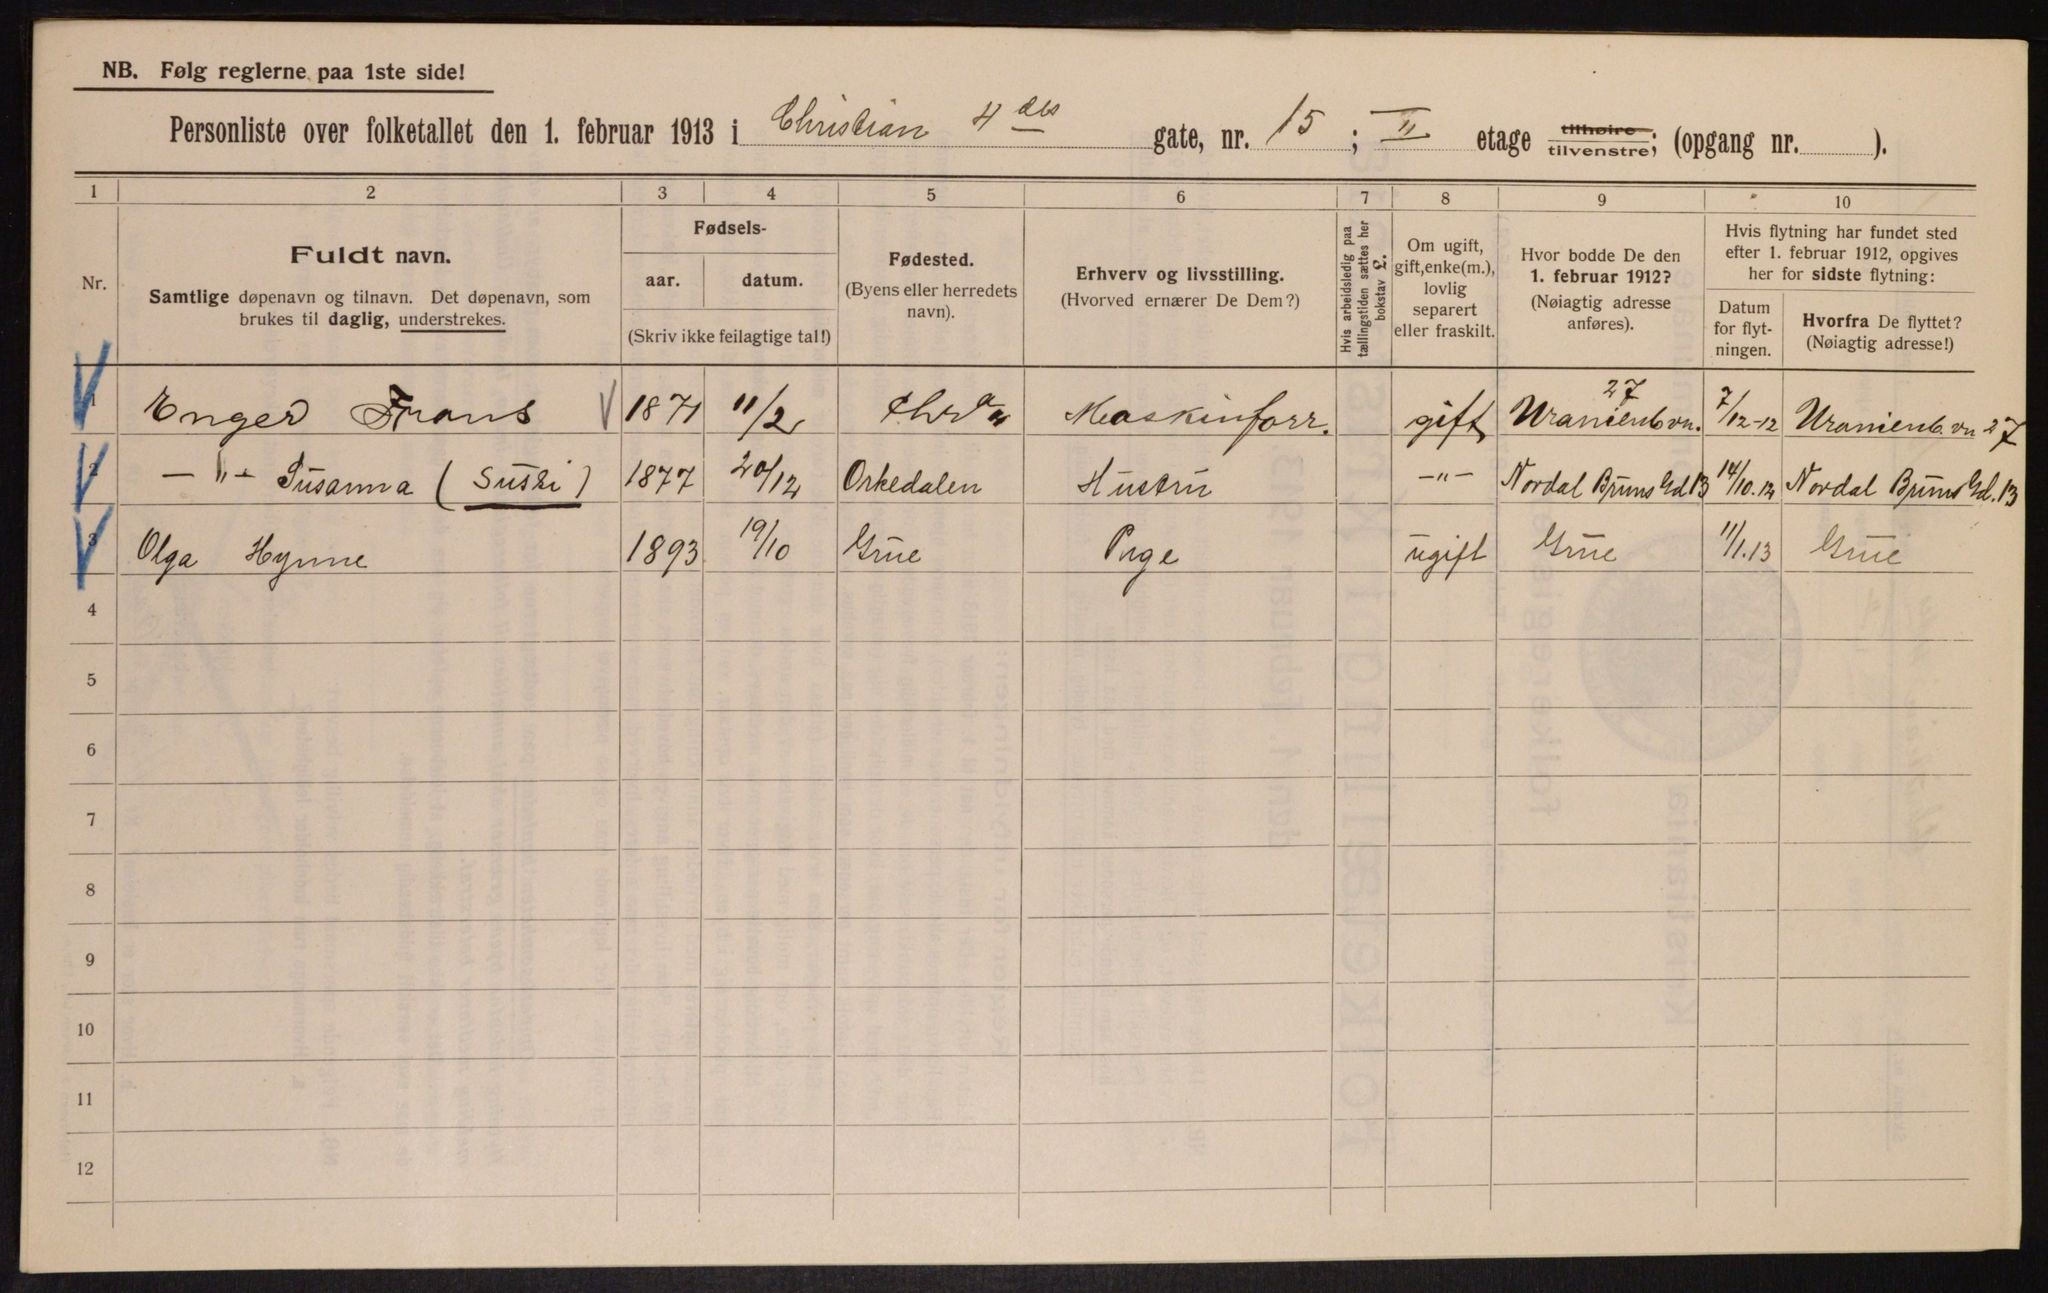 NB. Følg reglerne paa 1ste side!
Personliste over folketallet den 1. februar 1913 i Christian 4 des gate, nr. 15 ; II etage tilhøire tilvenstre; (opgang nr. ).
1 2 3 4 5 6 7 8 9 10
Nr.
Fuldt navn.
Samtlige døpenavn og tilnavn. Det døpenavn, som
brukes til daglig, understrekes.
Fødsels-
aar. datum.
(Skriv ikke feilagtige tal!)
Fødested.
(Byens eller herredets
navn).
Erhverv og livsstilling.
(Hvorved ernærer De Dem?)
Hvis arbeidsledig paa
tællingstiden sættes her
bokstav L.
Om ugift,
gift, enke(m.),
lovlig
separert
eller fraskilt.
Hvor bodde De den
1. februar 1912?
(Nøiagtig adresse
anføres).
Hvis flytning har fundet sted
efter 1. februar 1912, opgives
her for sidste flytning:
Datum
for flyt-
ningen.
Hvorfra De flyttet?
(Nøiagtig adresse!)
1 Enger Frans 1871 11/2 Chr.a Maskinforr. gift Uranienb.vn. 27 7/12-12 Uranienb.vn 27
2 -"- Susanna (Sussi) 1877 20/12 Orkedalen Hustru -"- Nordal Bruns Gd 13 14/10.12 Nordal Bruns Gd. 13
3 Olga Hynne 1893 19/10 Grue Pige ugift Grue 11/1.13 Grue
4
5
6
7
8
9
10
11
12